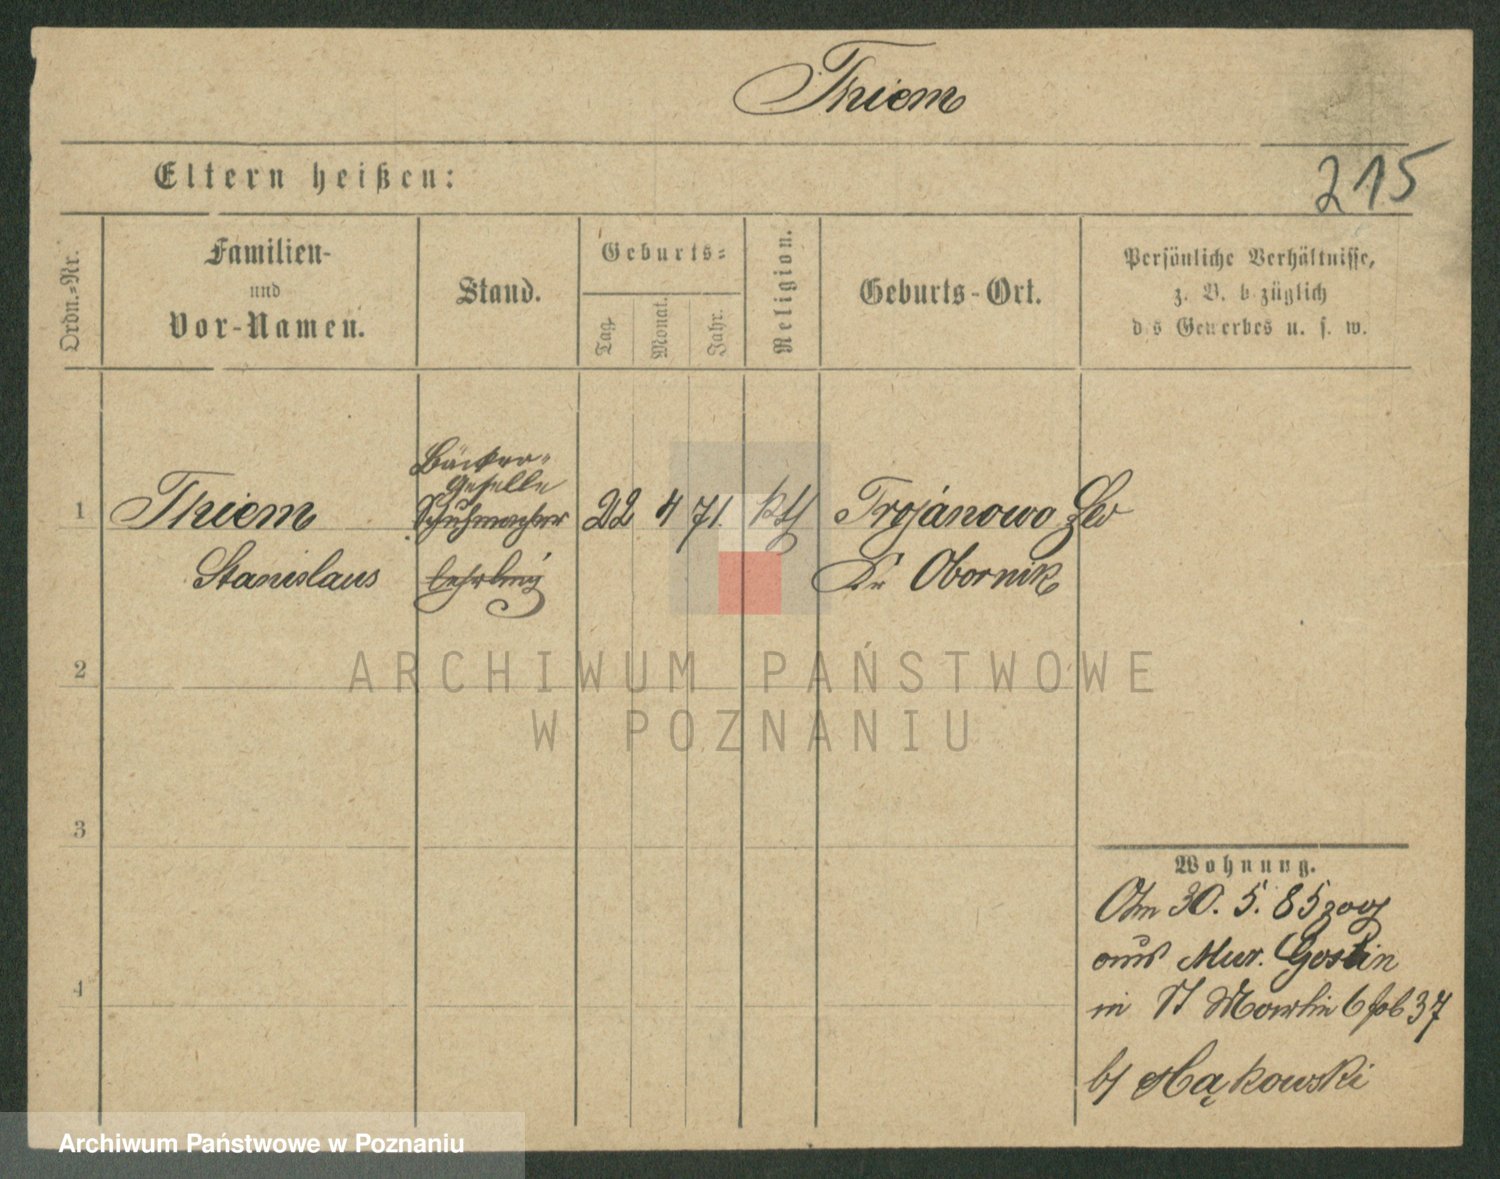 Thiem
215
Eltern heißen:
Ordn.-Nr.
Familien-
und
Vor-Namen.
Stand.
Geburts-
Tag.
Monat.
Jahr.
Religion.
Geburts-Ort.
Persönliche Verhältnisse,
z. B. bezüglich
des Gewerbes u. s. w.
Bäcker-
Geselle
1 Thiem Schuhmacher 22 4 71. kth Trojanowo
Stanislaus Lehrling Kr Obornik
2
3
4
ARCHIWUM PAŃSTWOWE
W POZNANIU
Wohnung.
Am 30. 5. 85 zog
aus Mur. Goslin
in St Martin 6 37
b/ Mąkowski
Archiwum Państwowe w Poznaniu